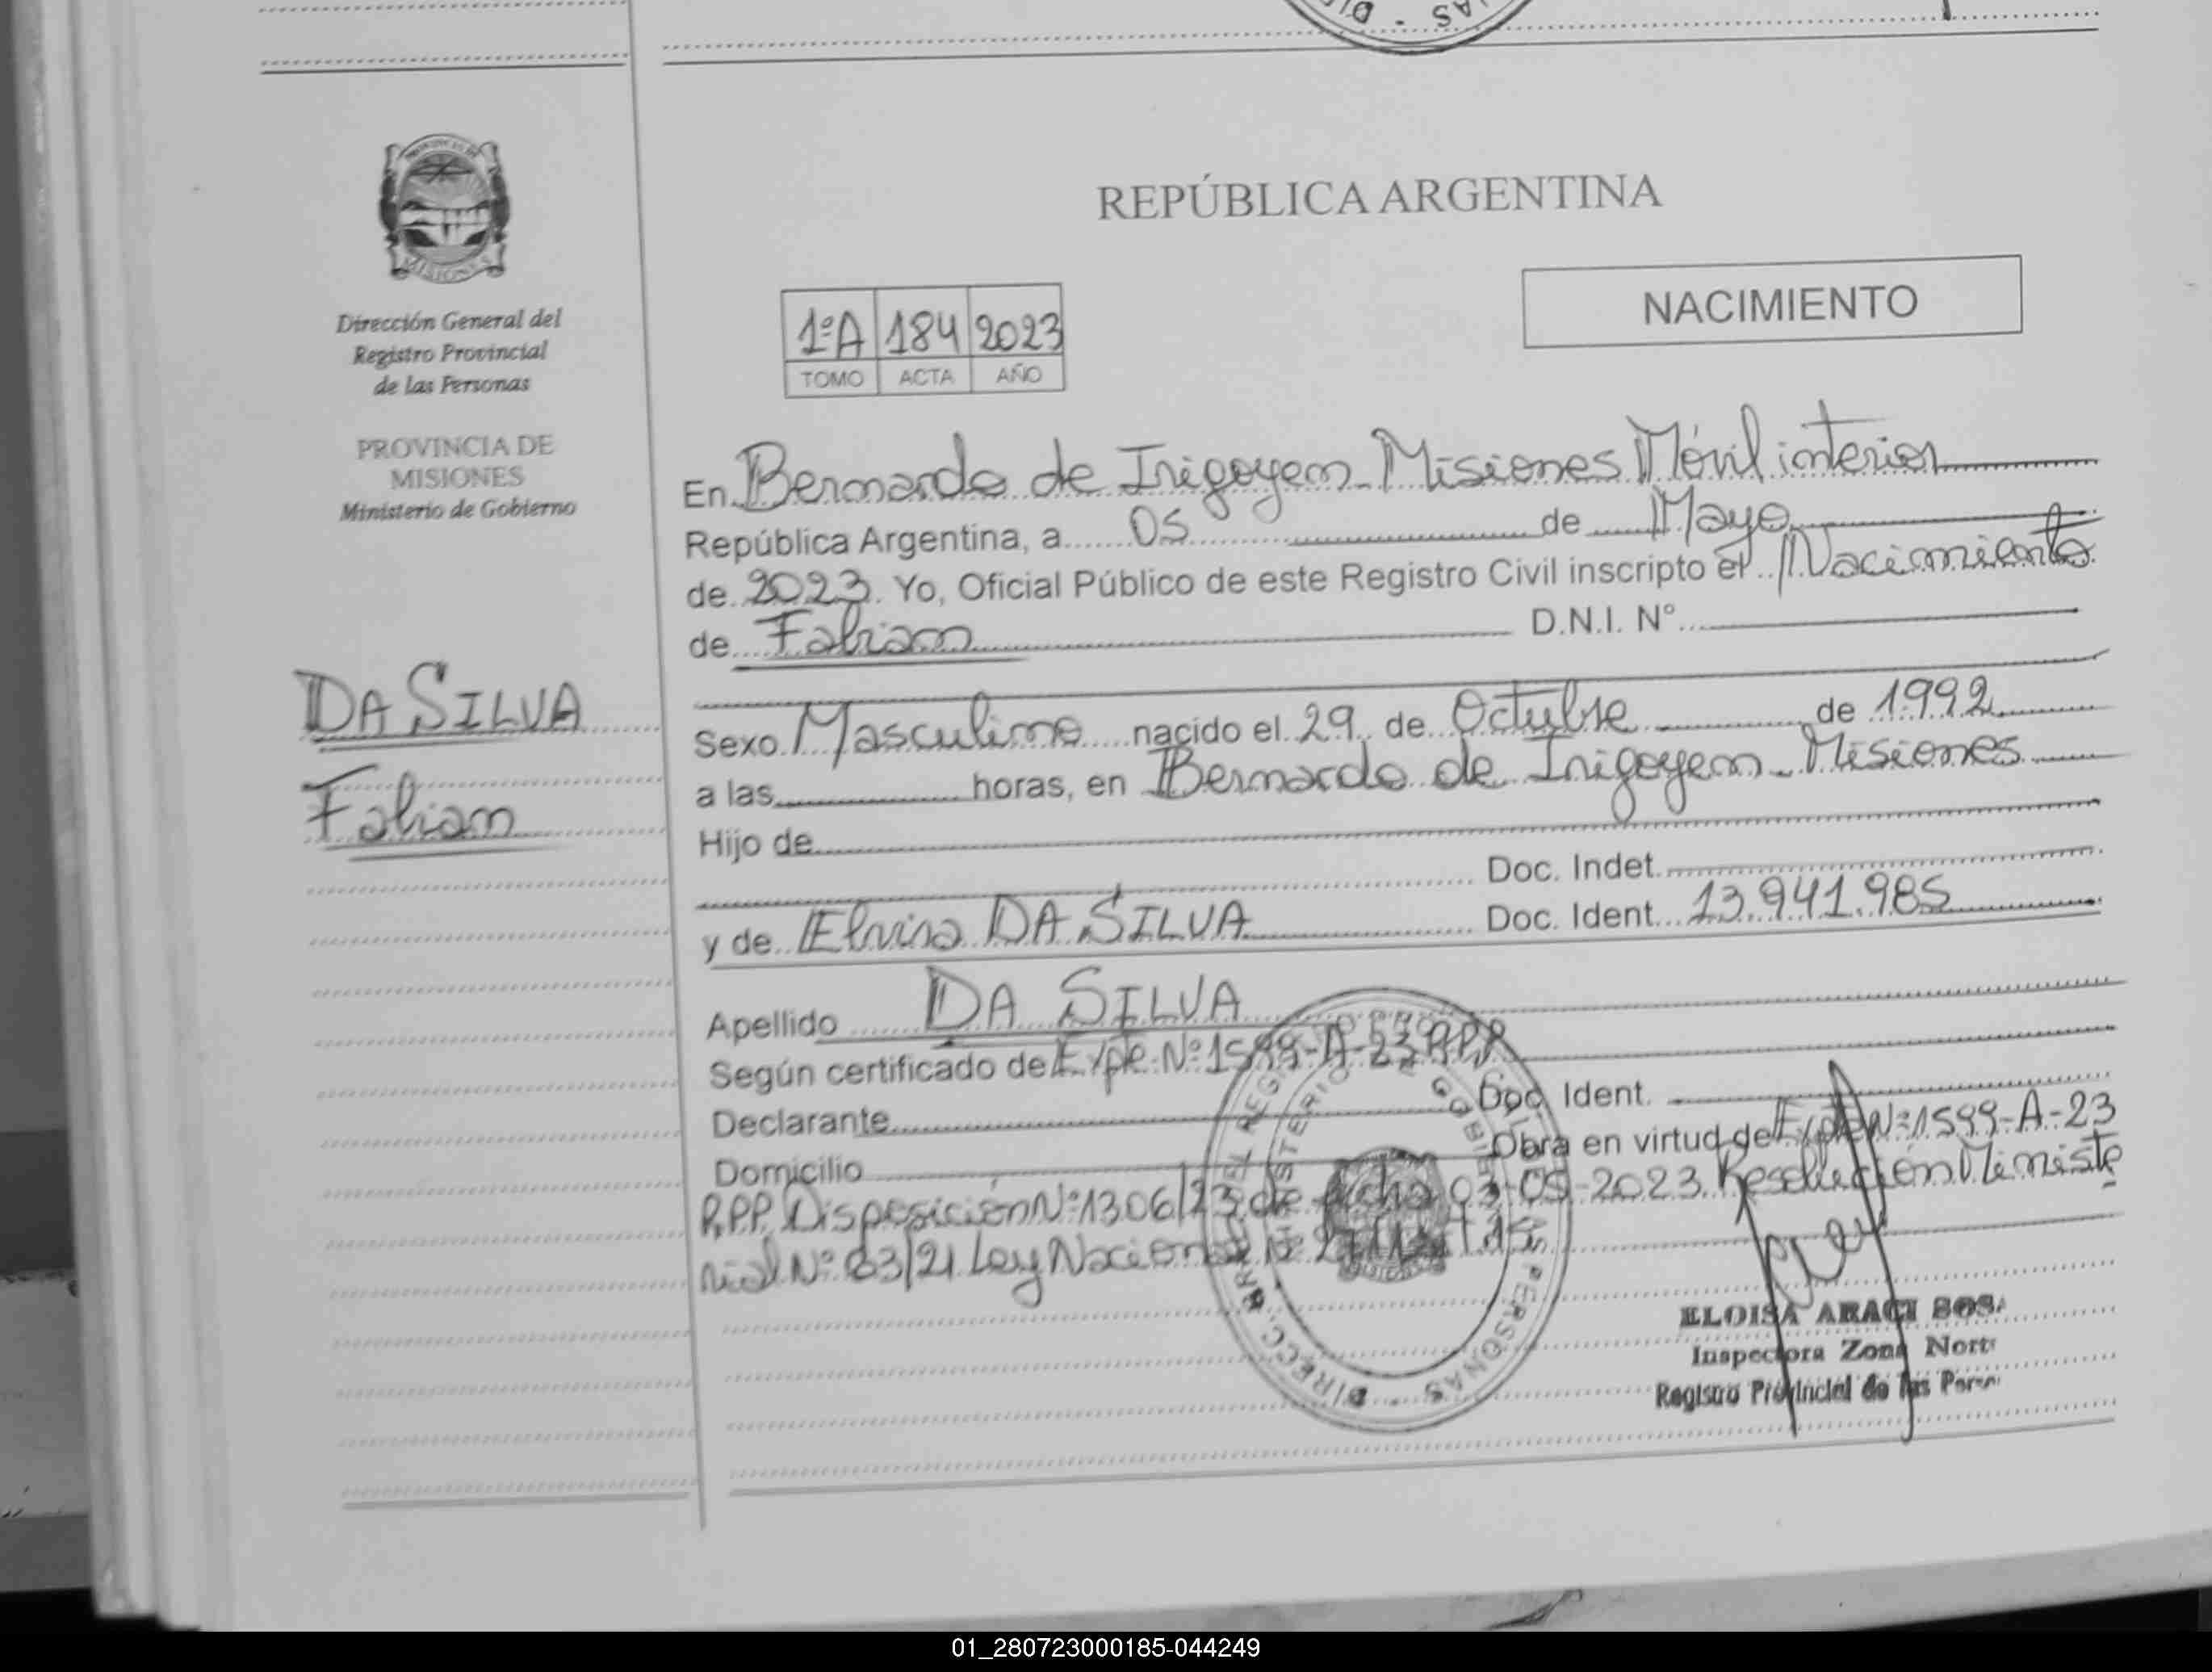 REPÚBLICA ARGENTINA
Dirección General del
Registro Provincial
de las Personas
PROVINCIA DE
MISIONES
Ministerio de Gobierno
DA SILVA
Fabian
1ºA 184 2023
TOMO ACTA AÑO
NACIMIENTO
En Bernardo de Irigoyen - Misiones Móvil interior
República Argentina, a 05 de Mayo
de 2023. Yo, Oficial Público de este Registro Civil inscripto el Nacimiento
de Fabian D.N.I. Nº
Sexo Masculino nacido el 29 de Octubre de 1992
a las horas, en Bernardo de Irigoyen - Misiones
Hijo de
Doc. Indet.
y de Elvira DA SILVA Doc. Ident. 13.941.985
Apellido DA SILVA
Según certificado de Expte. Nº 1599-A-23 R.P.P.
Declarante Doc. Ident.
Domicilio Obra en virtud de Expte Nº 1599-A-23
R.P.P. Disposición Nº 1306/23 de fecha 03-05-2023. Resolución Ministe
rial Nº 83/21 Ley Nacional Nº
ELOISA ARACI SOSA
Inspectora Zona Norte
Registro Provincial de las Perso
01_280723000185-044249